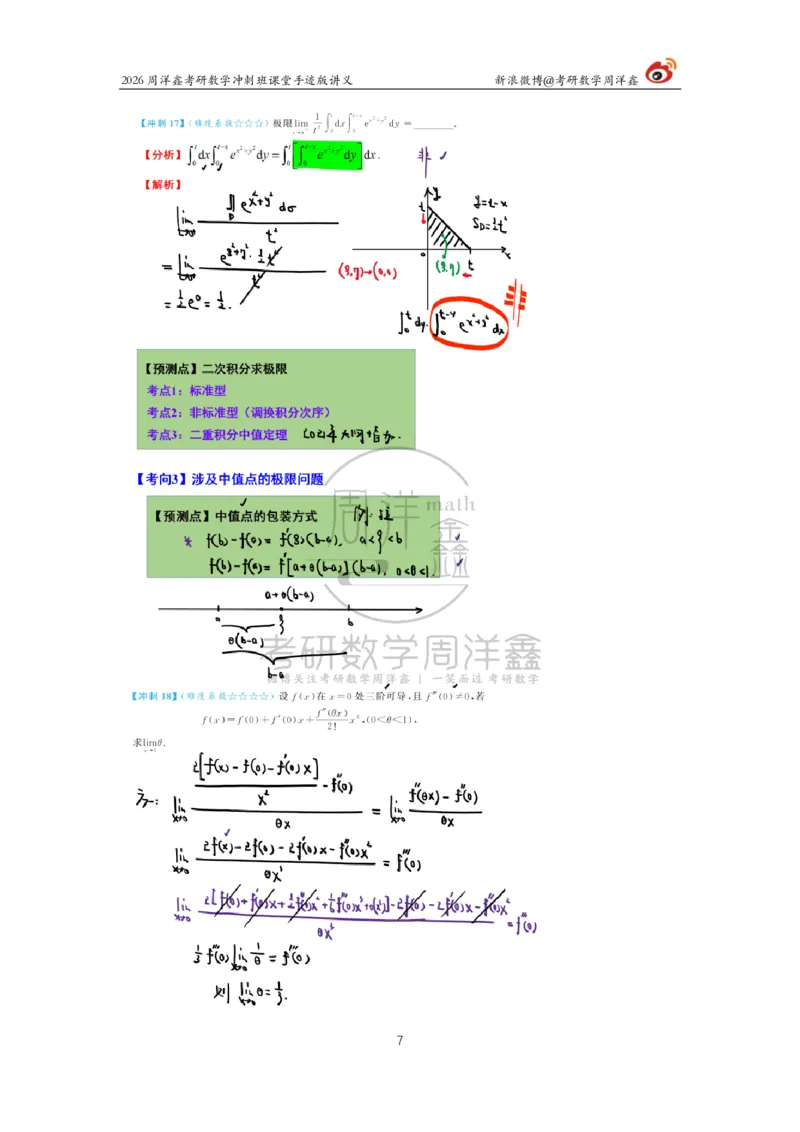 2026 周洋鑫考研数学冲刺班课堂手迹版讲义 新浪微博@考研数学周洋鑫
【冲刺 17】(难度系数☆☆☆) 极限 lim_{t→0⁺} 1/t² ∫₀ᵗ dx ∫₀^{t−x} e^{x²+y²} dy = ______.
【分析】 ∫₀ᵗ dx ∫₀^{t−x} e^{x²+y²} dy = ∫₀ᵗ [∫₀^{t−x} e^{x²+y²} dy] dx. 非 ✓
【解析】
lim_{t→0} ∬_D e^{x²+y²} dσ / t²
= lim_{t→0} e^{ξ²+η²}·½t² / t² (ξ,η)→(0,0)
= ½e⁰ = ½.
y
t
y=t−x
S_D=½t²
o (ξ,η) t x
∫₀ᵗ dy ∫₀^{t−y} e^{x²+y²} dx
【预测点】二次积分求极限
考点1：标准型
考点2：非标准型（调换积分次序）
考点3：二重积分中值定理
【考向3】涉及中值点的极限问题
【预测点】中值点的包装方式
f(b)−f(a)= f′(ξ)(b−a), a<ξ<b ✓
f(b)−f(a)= f′[a+θ(b−a)](b−a), 0<θ<1. ✓
a+θ(b−a)
a ξ b
θ(b−a)
b−a
周洋鑫 math
考研数学周洋鑫
微博关注考研数学周洋鑫 | 一笑而过 考研数学
【冲刺 18】(难度系数☆☆☆☆) 设 f(x)在 x=0 处三阶可导,且 f‴(0)≠0,若
f(x)=f(0)+f′(0)x+ f″(θx)/2! x²,(0<θ<1),
求 lim_{x→0} θ.
方一: lim_{x→0} {2[f(x)−f(0)−f′(0)x]/x² − f″(0)} / θx = lim_{x→0} [f″(θx)−f″(0)] / θx
lim_{x→0} [2f(x)−2f(0)−2f′(0)x−f″(0)x²] / θx³ = f‴(0)
lim_{x→0} {2[f(0)+f′(0)x+½f″(0)x²+⅙f‴(0)x³+o(x³)]−2f(0)−2f′(0)x−f″(0)x²} / θx³ = f‴(0)
⅓ f‴(0) lim_{x→0} 1/θ = f‴(0)
则 lim_{x→0} θ = ⅓.
7